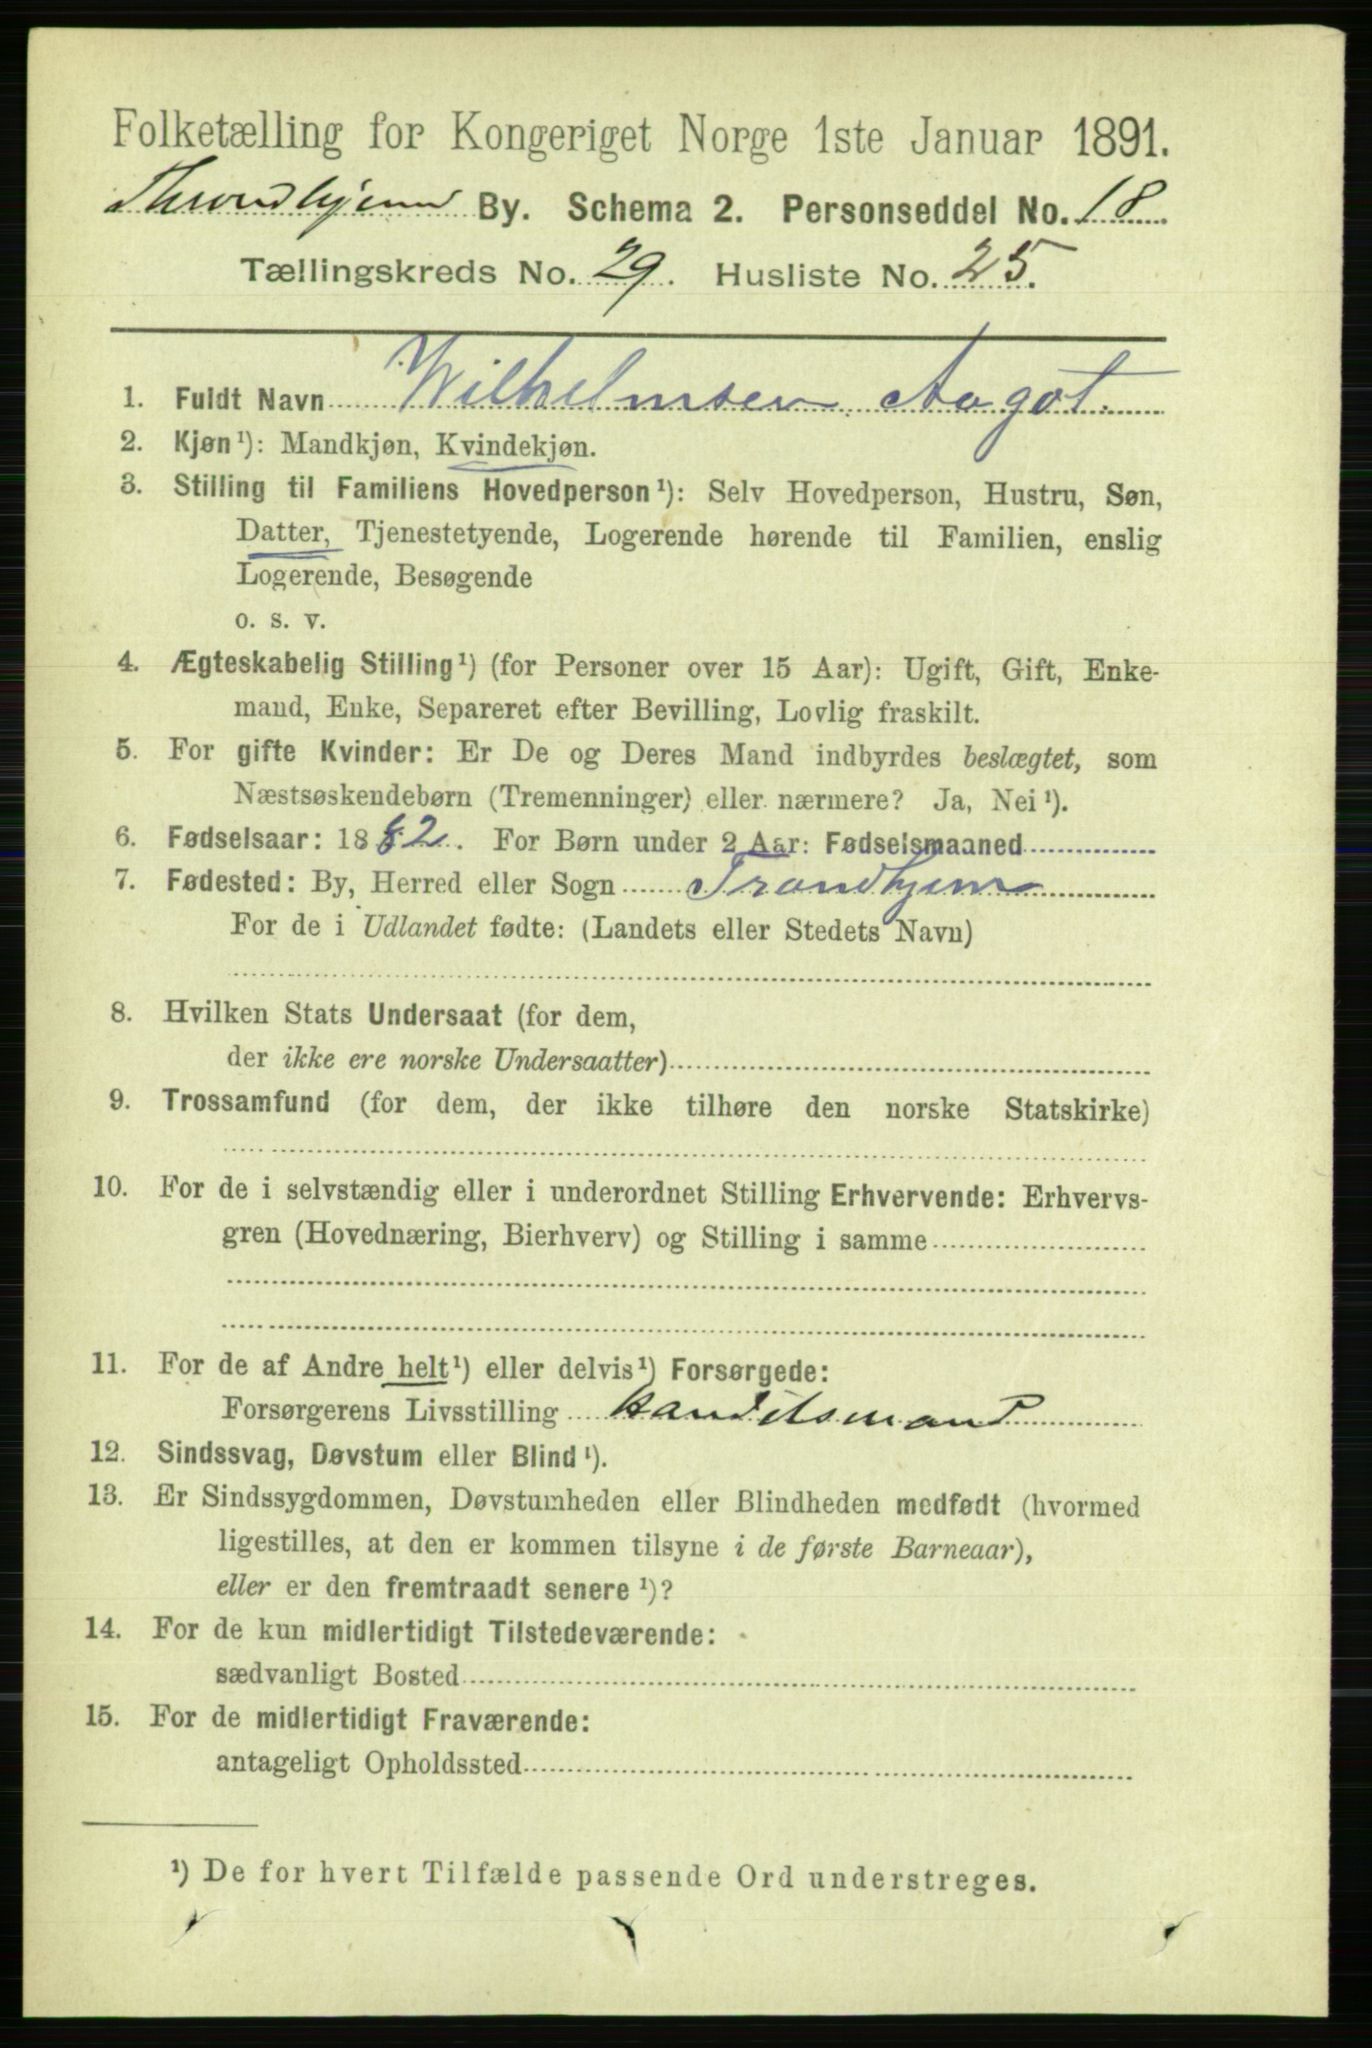 Folketælling for Kongeriget Norge 1ste Januar 1891.
Throndhjem By. Schema 2. Personseddel No. 18
Tællingskreds No. 29. Husliste No. 25.
1. Fuldt Navn Wilhelmsen, Aagot.
2. Kjøn¹): Mandkjøn, Kvindekjøn.
3. Stilling til Familiens Hovedperson¹): Selv Hovedperson, Hustru, Søn,
Datter, Tjenestetyende, Logerende hørende til Familien, enslig
Logerende, Besøgende
o. s. v.
4. Ægteskabelig Stilling¹) (for Personer over 15 Aar): Ugift, Gift, Enke-
mand, Enke, Separeret efter Bevilling, Lovlig fraskilt.
5. For gifte Kvinder: Er De og Deres Mand indbyrdes beslægtet, som
Næstsøskendebørn (Tremenninger) eller nærmere? Ja, Nei¹).
6. Fødselsaar: 1882. For Børn under 2 Aar: Fødselsmaaned
7. Fødested: By, Herred eller Sogn Trondhjem
For de i Udlandet fødte: (Landets eller Stedets Navn)
8. Hvilken Stats Undersaat (for dem,
der ikke ere norske Undersaatter)
9. Trossamfund (for dem, der ikke tilhøre den norske Statskirke)
10. For de i selvstændig eller i underordnet Stilling Erhvervende: Erhvervs-
gren (Hovednæring, Bierhverv) og Stilling i samme
11. For de af Andre helt¹) eller delvis¹) Forsørgede:
Forsørgerens Livsstilling Handelsmand
12. Sindssvag, Døvstum eller Blind¹).
13. Er Sindssygdommen, Døvstumheden eller Blindheden medfødt (hvormed
ligestilles, at den er kommen tilsyne i de første Barneaar),
eller er den fremtraadt senere¹)?
14. For de kun midlertidigt Tilstedeværende:
sædvanligt Bosted
15. For de midlertidigt Fraværende:
antageligt Opholdssted
¹) De for hvert Tilfælde passende Ord understreges.